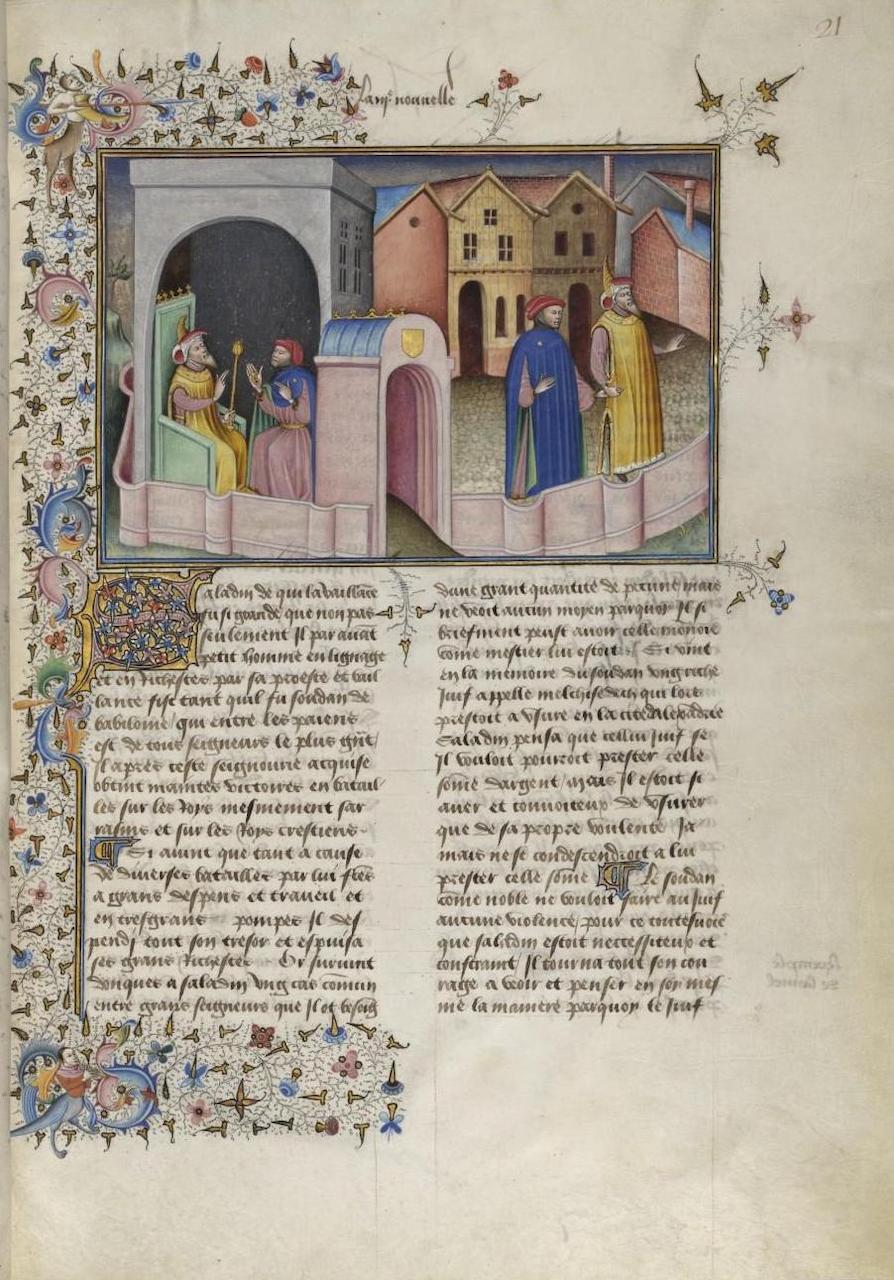 21
nouvelle
Saladin de qui la vaillāce
fu si grande que non pas
seulement Il par avāt
petit homme en lignage
et en richesses par sa proesse et vail
lance fist tant quil fu soudan de
babiloine qui entre les paiens
est de tous seigneurs le plus grāt
Il apres ceste seignourie acquise
obtint maintes victoires en batail
les sur les Roys mesmement sar
rasins et sur les Roys crestiens
Si avint que tant a cause
de diverses batailles par lui fctēs
a grans despens et traveil et
en tresgrans pompes Il des
pendi tout son tresor et espuisa
ses grans richesses Or survint
donques a saladin ung cas commun
entre grans seigneurs que Il ot besoīg
dune grant quantite de pecune mais
ne veoit aucun moien parquoy Il si
briefment peust avoir celle monoie
cōme mestier lui estoit Si vint
en la memoire du soudan ung riche
Juif appelle melchisedech qui lors
prestoit a usure en la cite dalexādrie
Saladin pensa que cellui Juif se
Il vouloit pourroit prester celle
sōme dargent mais Il estoit si
aver et convoiteux de usurer
que de sa propre voulente Ja
mais ne se condescendroit a lui
prester celle sōme Le soudan
cōme noble ne vouloit faire au Juif
aucune violence pour ce toutesvoies
que saladin estoit neccessiteux et
constraint Il tourna tout son cou
rage a veoir et penser en soy mes
me la maniere parquoy le Juif